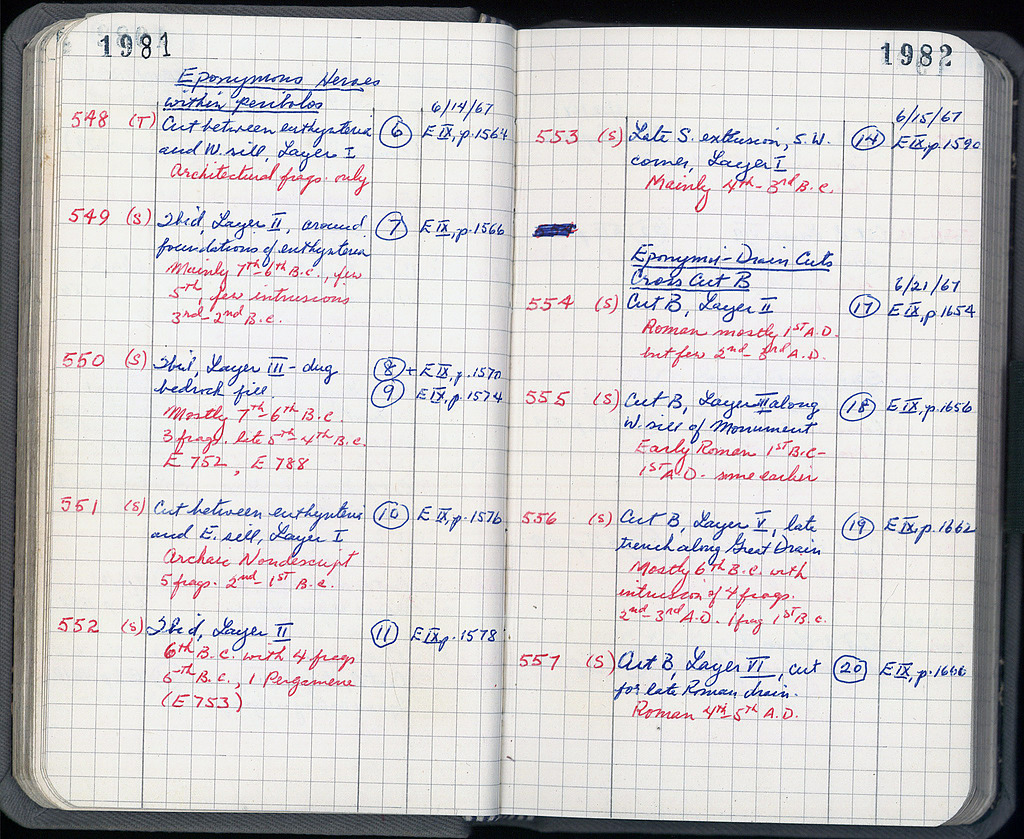 1981
Eponymous Heroes
within peribolos
6/14/67
548 (T) Cut between euthynteria ⑥ E IX, p.1564
and W. sill, Layer I
Architectural frags. only
549 (S) Ibid, Layer II, around ⑦ E IX, p.1566
foundations of euthynteria
Mainly 7th-6th B.C., few
5th, few intrusions
3rd-2nd B.C.
550 (S) Ibid, Layer III - dug ⑧ + E IX, p.1570
bedrock fill. ⑨ E IX, p.1574
Mostly 7th-6th B.C.
3 frags. late 5th-4th B.C.
E 752, E 788
551 (S) Cut between euthynteria ⑩ E IX, p.1576
and E. sill, Layer I
Archaic Nondescript
5 frags. 2nd-1st B.C.
552 (S) Ibid, Layer II ⑪ E IX p.1578
6th B.C. with 4 frags
5th B.C., 1 Pergamene
(E 753)
1982
6/15/67
553 (S) Late S. extrusion, S.W. ⑭ E IX, p.1590
corner, Layer I
Mainly 4th-3rd B.C.
Eponymoi-Drain Cuts
Cross Cut B
6/21/67
554 (S) Cut B, Layer II ⑰ E IX, p.1654
Roman mostly 1st A.D.
but few 2nd-3rd A.D.
555 (S) Cut B, Layer III along ⑱ E IX, p.1656
W. sill of Monument
Early Roman 1st B.C-
1st A.D. some earlier
556 (S) Cut B, Layer V, late ⑲ E IX, p.1662
trench along Great Drain
Mostly 6th B.C. with
intrusion of 4 frags.
2nd-3rd A.D. 1 frag 1st B.C.
557 (S) Cut B, Layer VI, cut ⑳ E IX, p.1666
for late Roman drain.
Roman 4th-5th A.D.